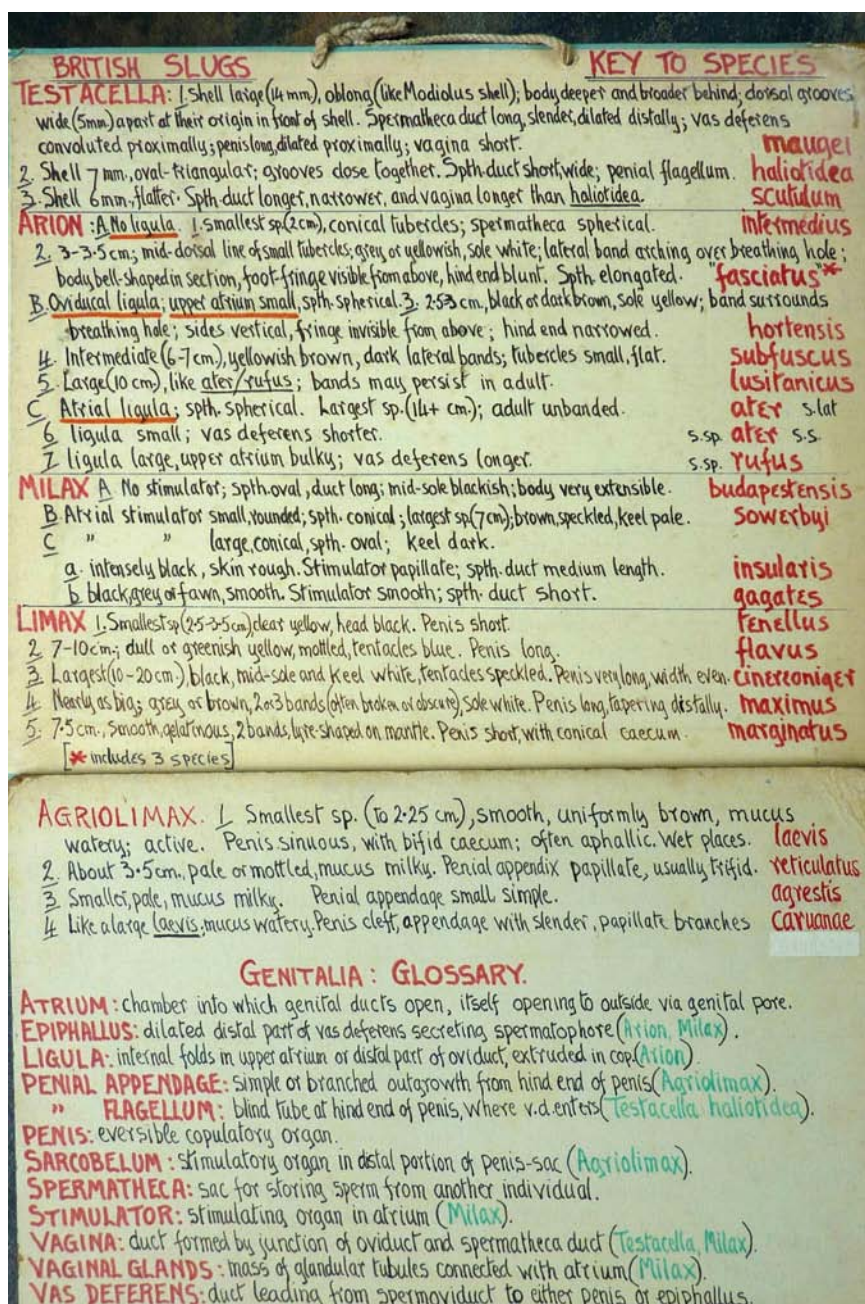 BRITISH SLUGS KEY TO SPECIES
TESTACELLA: 1. Shell large (14 mm), oblong (like Modiolus shell); body deeper and broader behind; dorsal grooves
wide (5mm) apart at their origin in front of shell. Spermatheca duct long, slender, dilated distally; vas deferens
convoluted proximally; penis long, dilated proximally; vagina short. maugei
2. Shell 7 mm., oval-triangular; grooves close together. Spth. duct short, wide; penial flagellum. haliotidea
3. Shell 6mm., flatter. Spth. duct longer, narrower, and vagina longer than haliotidea. scutulum
ARION: A No ligula. 1. Smallest sp. (2cm), conical tubercles; spermatheca spherical. intermedius
2. 3-3.5 cm; mid-dorsal line of small tubercles; grey or yellowish, sole white; lateral band arching over breathing hole;
body bell-shaped in section, foot-fringe visible from above, hind end blunt. Spth. elongated. "fasciatus"*
B. Oviducal ligula; upper atrium small, spth. spherical. 3. 2.5-3 cm., black or dark brown, sole yellow; band surrounds
breathing hole; sides vertical, fringe invisible from above; hind end narrowed. hortensis
4. Intermediate (6-7cm), yellowish brown, dark lateral bands; tubercles small, flat. subfuscus
5. Large (10 cm), like ater/rufus; bands may persist in adult. lusitanicus
C Atrial ligula; spth. spherical. Largest sp. (14+ cm.); adult unbanded. ater s.lat
6 ligula small; vas deferens shorter. s.sp. ater s.s.
7 ligula large, upper atrium bulky; vas deferens longer. s.sp. rufus
MILAX A No stimulator; spth. oval, duct long; mid-sole blackish; body very extensible. budapestensis
B Atrial stimulator small, rounded; spth. conical; largest sp. (7cm); brown, speckled, keel pale. sowerbyi
C " " large, conical, spth. oval; keel dark.
a. intensely black, skin rough. Stimulator papillate; spth. duct medium length. insularis
b. black, grey or fawn, smooth. Stimulator smooth; spth. duct short. gagates
LIMAX 1. Smallest sp (2.5-3.5cm) clear yellow, head black. Penis short. tenellus
2 7-10cm.; dull or greenish yellow, mottled, tentacles blue. Penis long. flavus
3. Largest (10-20cm.), black, mid-sole and keel white, tentacles speckled. Penis very long, width even. cinereoniger
4. Nearly as big; grey or brown, 2 or 3 bands (often broken or obscure), sole white. Penis long, tapering distally. maximus
5. 7.5cm., smooth, gelatinous, 2 bands, lyre-shaped on mantle. Penis short, with conical caecum. marginatus
[* includes 3 species]
AGRIOLIMAX. 1 Smallest sp. (to 2.25 cm), smooth, uniformly brown, mucus
watery; active. Penis sinuous, with bifid caecum; often aphallic. Wet places. laevis
2. About 3.5cm., pale or mottled, mucus milky. Penial appendix papillate, usually trifid. reticulatus
3 Smaller, pale, mucus milky. Penial appendage small, simple. agrestis
4 Like a large laevis; mucus watery. Penis cleft, appendage with slender, papillate branches caruanae
GENITALIA: GLOSSARY.
ATRIUM: chamber into which genital ducts open, itself opening to outside via genital pore.
EPIPHALLUS: dilated distal part of vas deferens secreting spermatophore (Arion, Milax).
LIGULA: internal folds in upper atrium or distal part of oviduct, extruded in cop. (Arion).
PENIAL APPENDAGE: simple or branched outgrowth from hind end of penis (Agriolimax).
" FLAGELLUM: blind tube at hind end of penis, where v.d. enters (Testacella haliotidea).
PENIS: eversible copulatory organ.
SARCOBELUM: stimulatory organ in distal portion of penis-sac (Agriolimax).
SPERMATHECA: sac for storing sperm from another individual.
STIMULATOR: stimulating organ in atrium (Milax).
VAGINA: duct formed by junction of oviduct and spermatheca duct (Testacella, Milax).
VAGINAL GLANDS: mass of glandular tubules connected with atrium (Milax).
VAS DEFERENS: duct leading from spermoviduct to either penis or epiphallus.